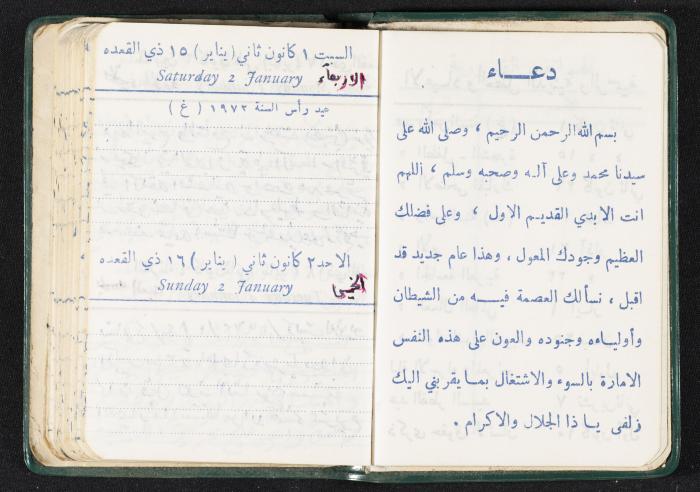 دعـــاء
بسم الله الرحمن الرحيم ، وصلى الله على
سيدنا محمد وعلى آله وصحبه وسلم ، أللهم
انت الابدي القديم الاول ، وعلى فضلك
العظيم وجودك المعول ، وهذا عام جديد قد
اقبل ، نسألك العصمة فيـــه من الشيطان
وأولياءه وجنوده والعون على هذه النفس
الامارة بالسوء والاشتغال بما يقربني اليك
زلفى يا ذا الجلال والاكرام .
السبت ١ كانون ثاني ( يناير ) ١٥ ذي القعده
Saturday 2 January الاربعاء
عيد رأس السنة ١٩٧٢ ( غ )
الاحد ٢ كانون ثاني ( يناير ) ١٦ ذي القعده
Sunday 2 January الخميس